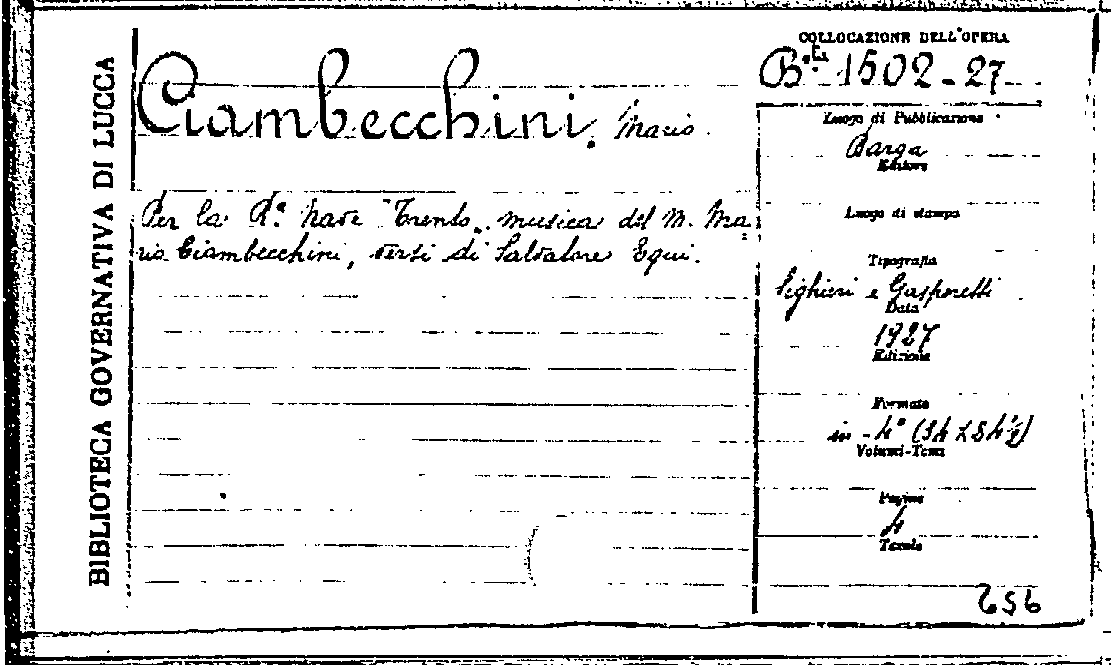 BIBLIOTECA GOVERNATIVA DI LUCCA
Ciambecchini, Mario
Per la R.ª Nave "Trento„ musica del M. Ma:
rio Ciambecchini, versi di Salvatore Equi.
COLLOCAZIONE DELL'OPERA
B.ta 1502-27
Luogo di Pubblicazione
Barga
Editore
Luogo di stampa
Tipografia
Sighieri e Gasperetti
Data
1927
Edizione
Formato
in-4°
Volumi-Tomi
Pagine
4
Tavole
656